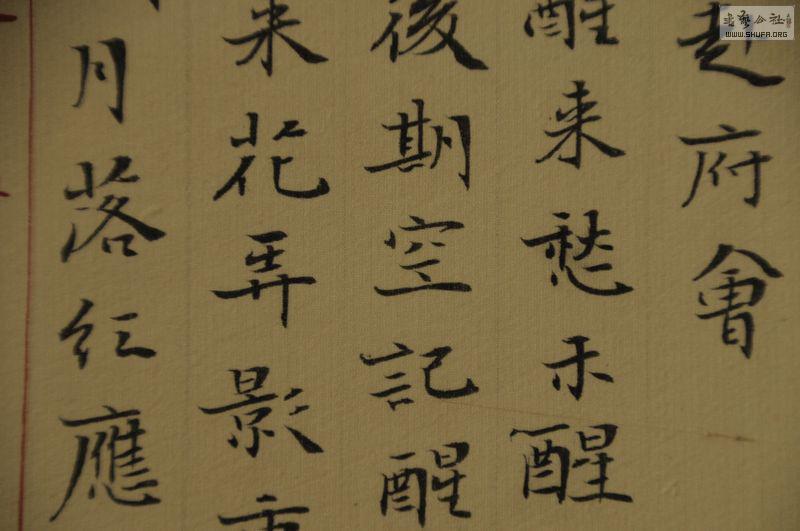 赴府會
醒来愁未醒
後期空記醒
来花弄影重
月落紅應
書藝公社
WWW.SHUFA.ORG